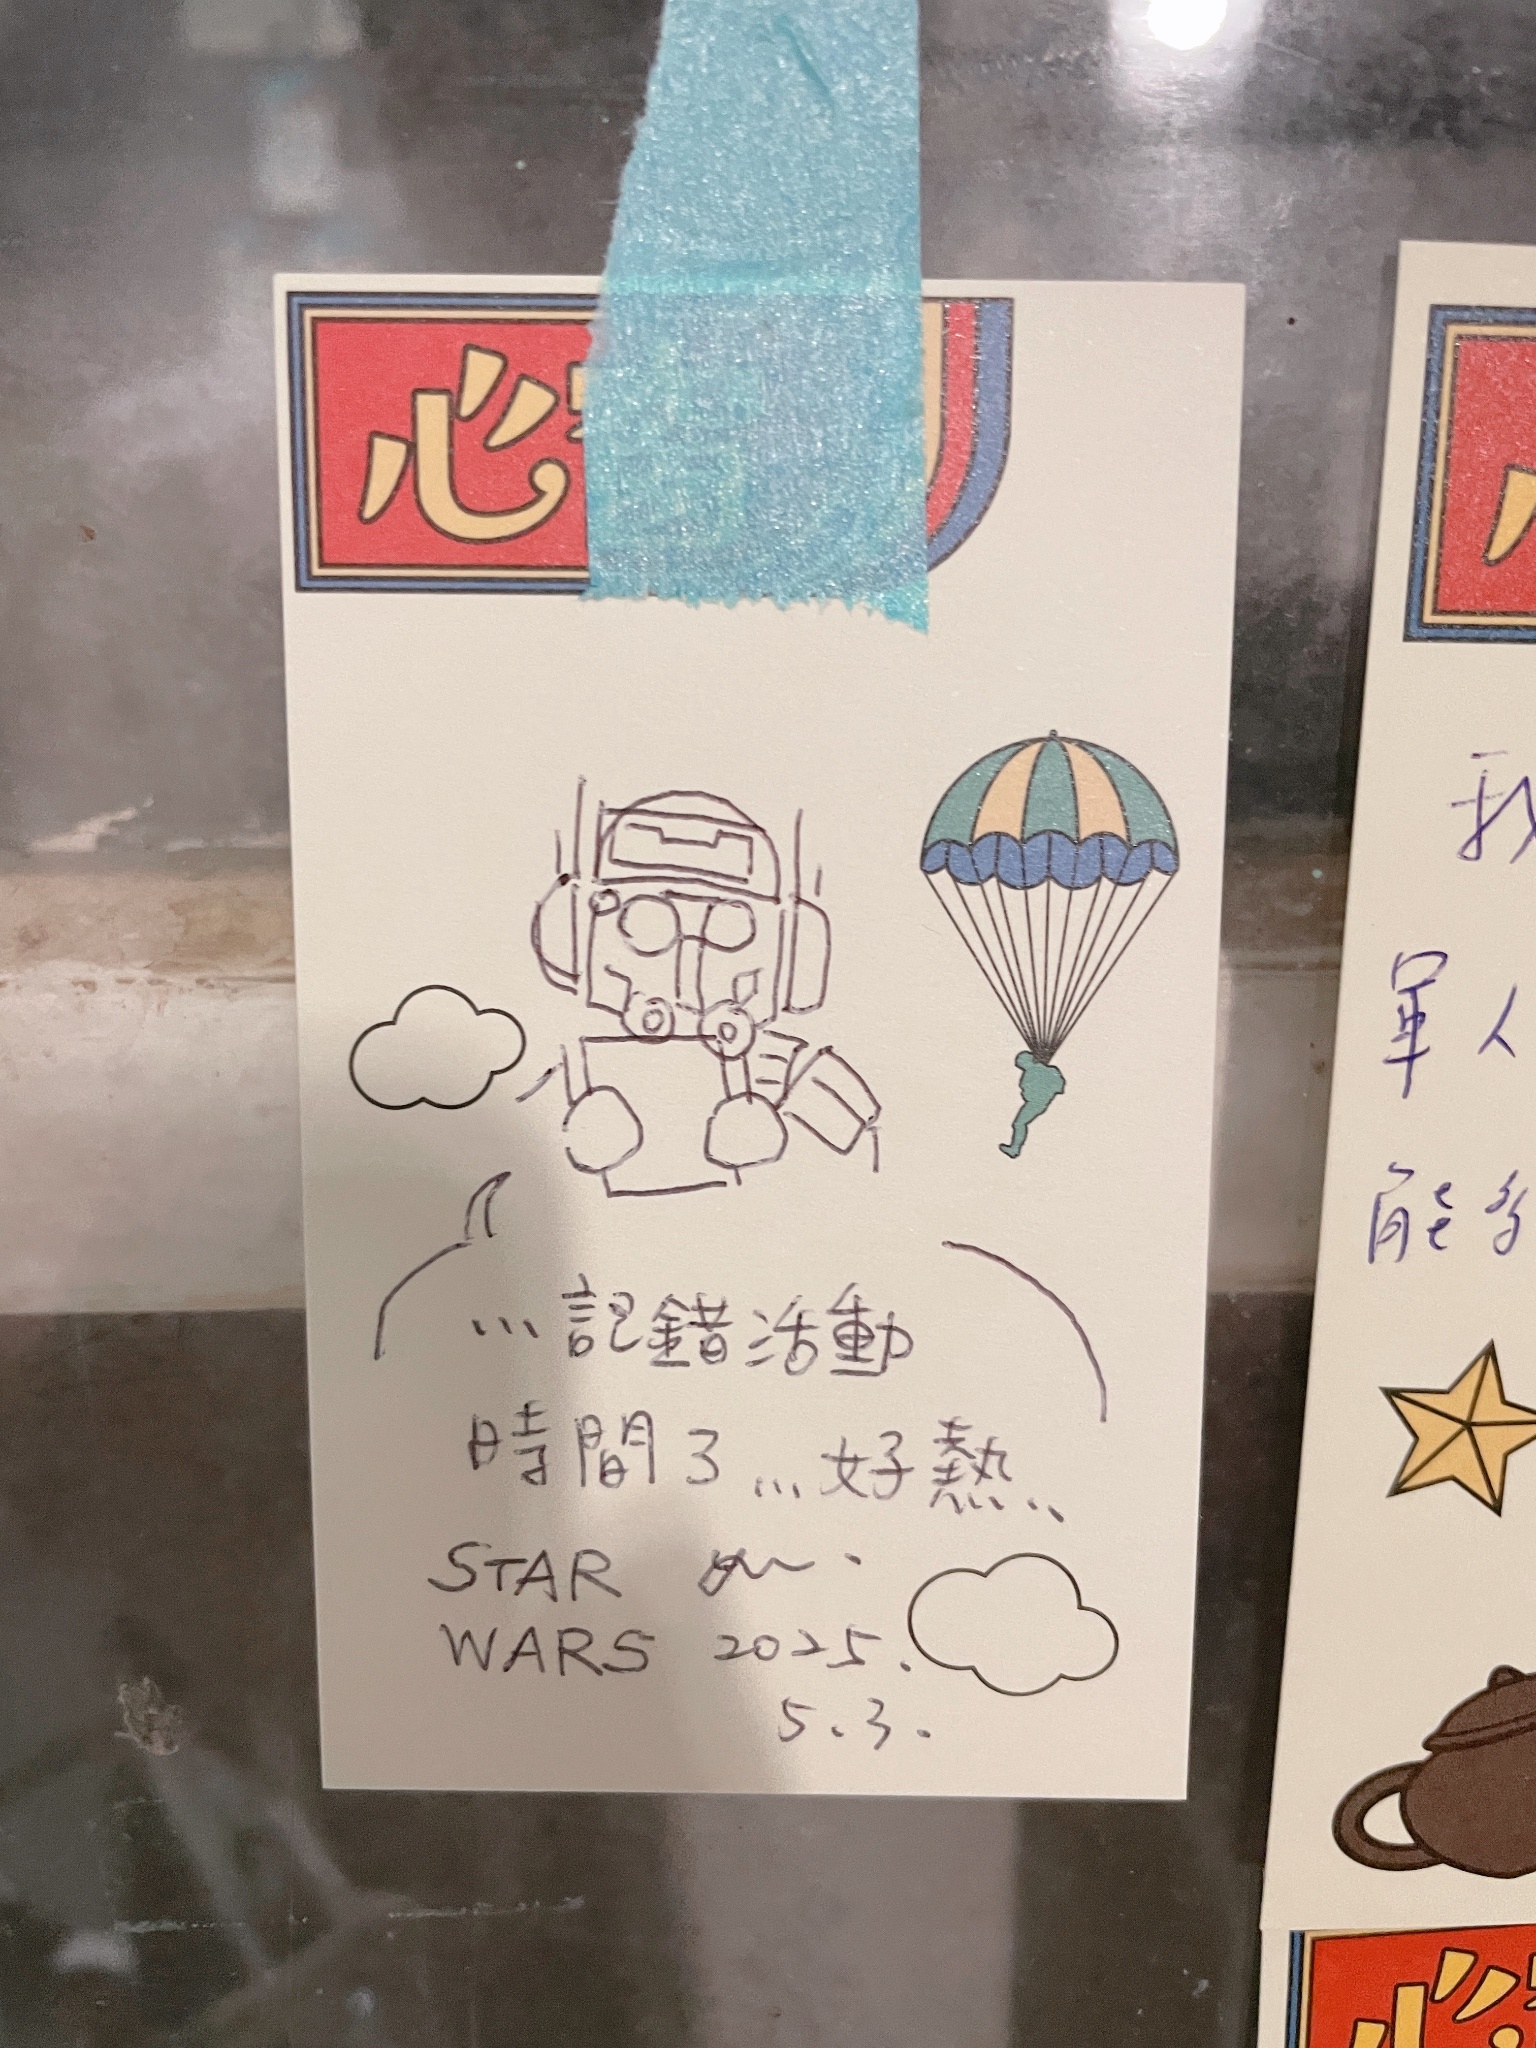 心
…記錯活動
時間了…好熱..
STAR
WARS 2025.
5.3.
我
軍人
能多